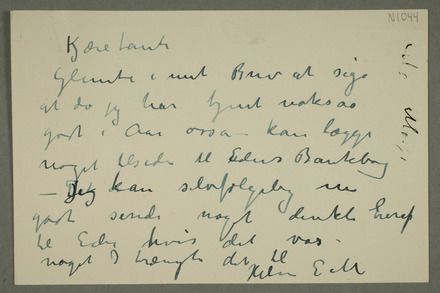 N1044
Kjære tante
Glemte i mit Brev at sige
at da jeg har tjent voksaa
godt i Aar ossa – kan lægge
noget tilside til Eders Bankbog
– Jeg kan selvfølgelig nu
godt sende noget direkte herfra
til Eder hvis det var
noget I trængte det til
Hilsen E M